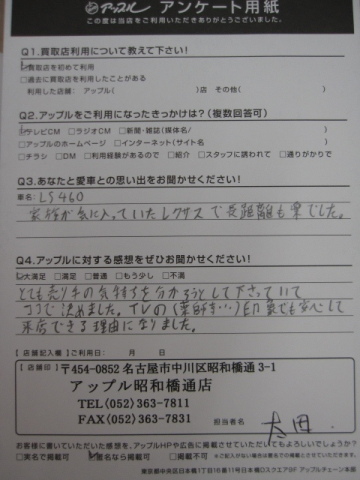 アップル アンケート用紙
この度は当店をご利用いただきありがとうございました。
Q1.買取店利用について教えて下さい!
☑買取店を初めて利用
□過去に買取店を利用したことがある
利用した店舗: アップル( )店 その他( )
Q2.アップルをご利用になったきっかけは?(複数回答可)
☑テレビCM □ラジオCM □新聞・雑誌(媒体名/ )
□アップルのホームページ □インターネット(サイト名 )
□チラシ □DM □利用経験があるので □紹介 □スタッフに誘われて □通りがかりで
Q3.あなたと愛車との思い出をお聞かせください!
車名: LS460
家族が気に入っていたレクサスで長距離も楽でした。
Q4.アップルに対する感想をぜひお聞かせください!
☑大満足 □満足 □普通 □もう少し □不満
とても売り手の気持ちを分かろうとして下さっていて
ココで決めました。TVの(楽しげ…)印象でも安心して
来店できる理由になりました。
【店舗記入欄】ご利用日: 月 日
【店舗印】
〒454-0852 名古屋市中川区昭和橋通 3-1
アップル昭和橋通店
TEL(052)363-7811
FAX(052)363-7831
担当者名 太田
お客様に書いていただいた感想を、アップルHPや広告に掲載させていただいてもよろしいでしょうか?
□実名で掲載可 ☑匿名なら掲載可 □掲載不可
※ご記入がない場合は匿名での掲載とさせていただきます。
東京都中央区日本橋1丁目16番11号日本橋Dスクエア8F アップルチェーン本部